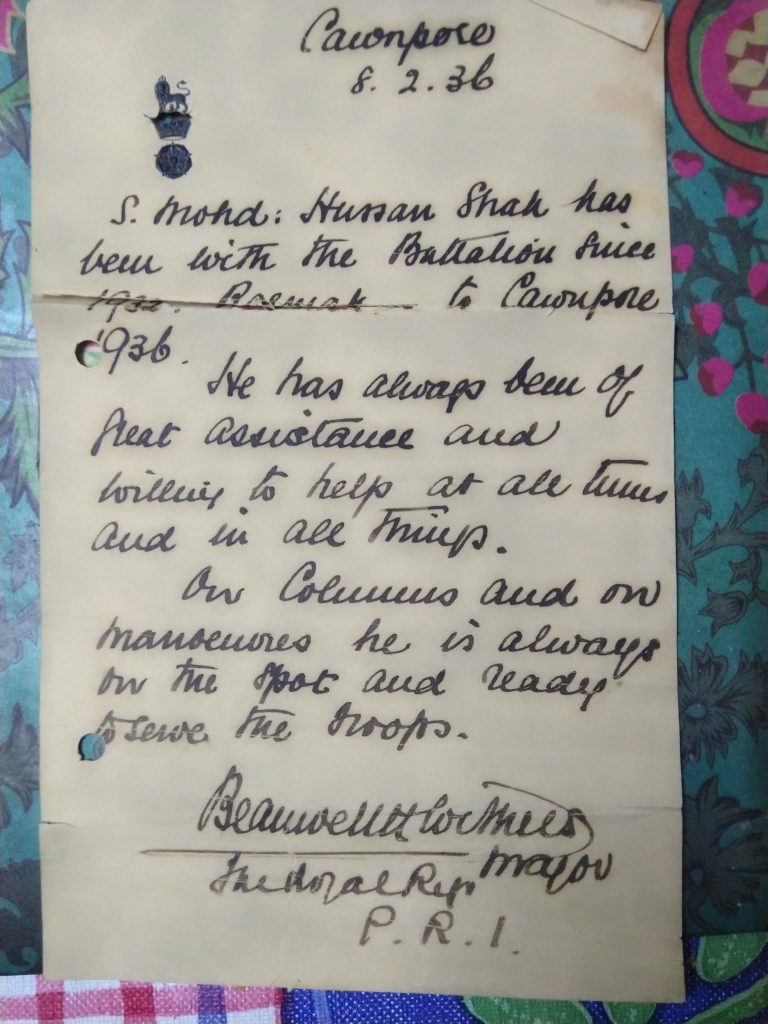 Cawnpore
8. 2. 36
S. Mohd: Hussan Shah has
been with the Battalion since
1932. Razmak to Cawnpore
1936.
He has always been of
great assistance and
willing to help at all times
and in all things.
On Columns and on
manoeuvres he is always
on the spot and ready
to serve the troops.
Major
The Royal Regt
P. R. I.